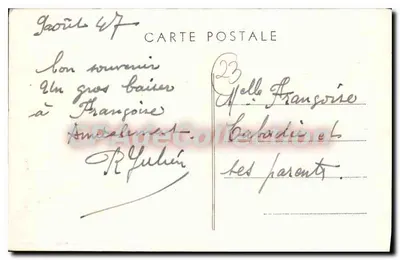 9 août 47
CARTE POSTALE
bon souvenir
Un gros baiser
à Françoise
Amicalement
R Julien
23
Melle Françoise
et
ses parents.